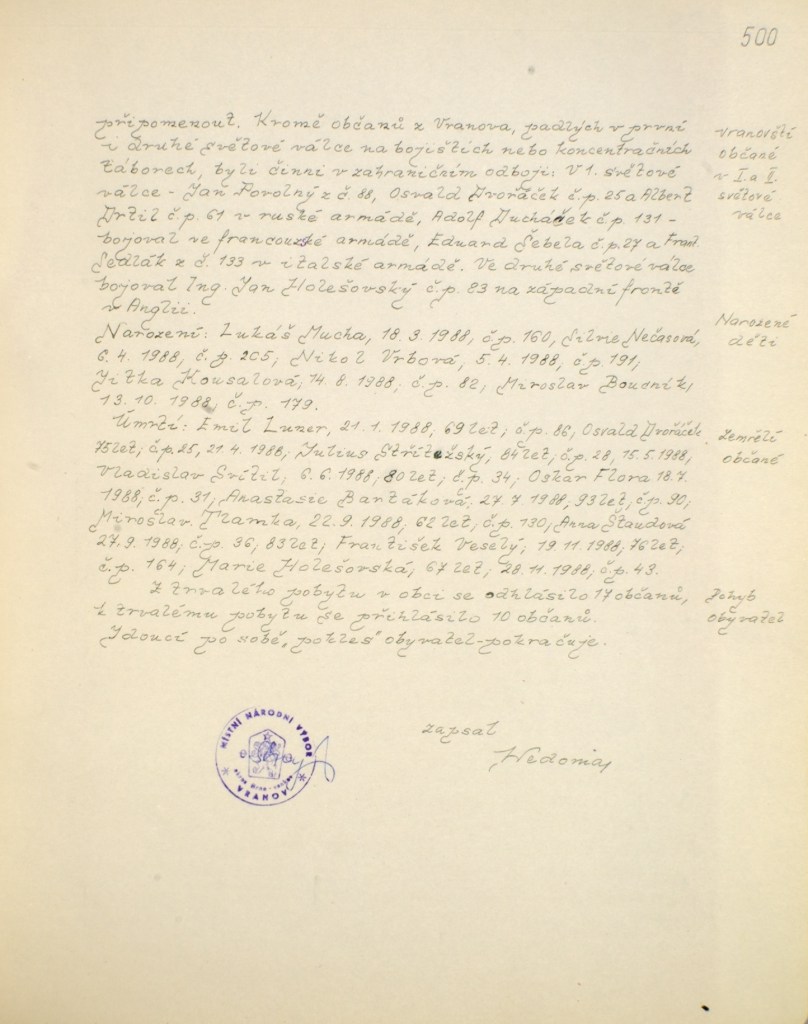 500
připomenout. Kromě občanů z Vranova, padlých v první
i druhé světové válce na bojištích nebo koncentračních
táborech, byli činni v zahraničním odboji: V 1. světové
válce - Jan Povolný z č. 88, Osvald Dvořáček č.p. 25 a Albert
Drtil č.p. 61 v ruské armádě, Adolf Ducháček č.p. 131 -
bojoval ve francouzské armádě, Eduard Šebela č.p. 27 a Frant.
Sedlák z č. 133 v italské armádě. Ve druhé světové válce
bojoval Ing. Jan Holešovský č.p. 83 na západní frontě
v Anglii.
Vranovští
občané
v I. a II.
světové
válce
Narození: Lukáš Mucha, 18. 3. 1988, č.p. 160, Silvie Nečasová,
6. 4. 1988, č.p. 205; Nikol Vrbová, 5. 4. 1988, č.p. 191;
Jitka Kousalová; 14. 8. 1988; č.p. 82, Miroslav Boudník,
13. 10. 1988, č.p. 179.
Narozené
děti
Úmrtí: Emil Luner, 21. 1. 1988; 69 let; č.p. 86, Osvald Dvořáček
75 let; č.p. 25, 21. 4. 1988; Julius Střítežský, 84 let; č.p. 28, 15. 5. 1988,
Vladislav Svítil; 6. 6. 1988; 80 let; č.p. 34; Oskar Flora 18. 7.
1988; č.p. 31; Anastasie Bartáková; 27. 7. 1988, 93 let; č.p. 90;
Miroslav Tlamka, 22. 9. 1988; 62 let; č.p. 130; Anna Štaudová
27. 9. 1988; č.p. 36; 83 let; František Veselý; 19. 11. 1988; 76 let;
č.p. 164; Marie Holešovská; 67 let; 28. 11. 1988; č.p. 43.
Zemřelí
občané
Z trvalého pobytu v obci se odhlásilo 17 občanů,
k trvalému pobytu se přihlásilo 10 občanů.
Jdoucí po sobě, pokles obyvatel - pokračuje.
Pohyb
obyvatel
zapsal
MÍSTNÍ NÁRODNÍ VÝBOR
VRANOV